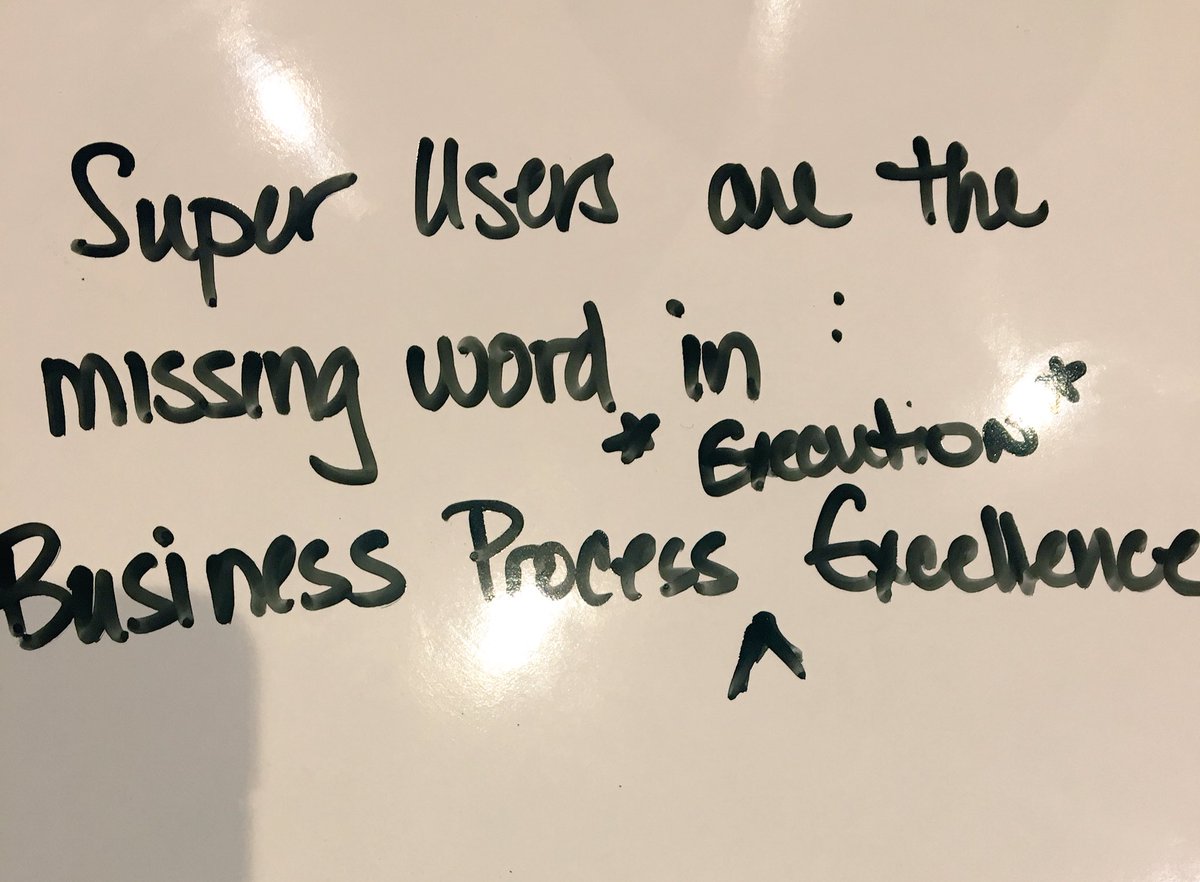 Super Users are the
missing word in :
* Execution *
Business Process Excellence
^